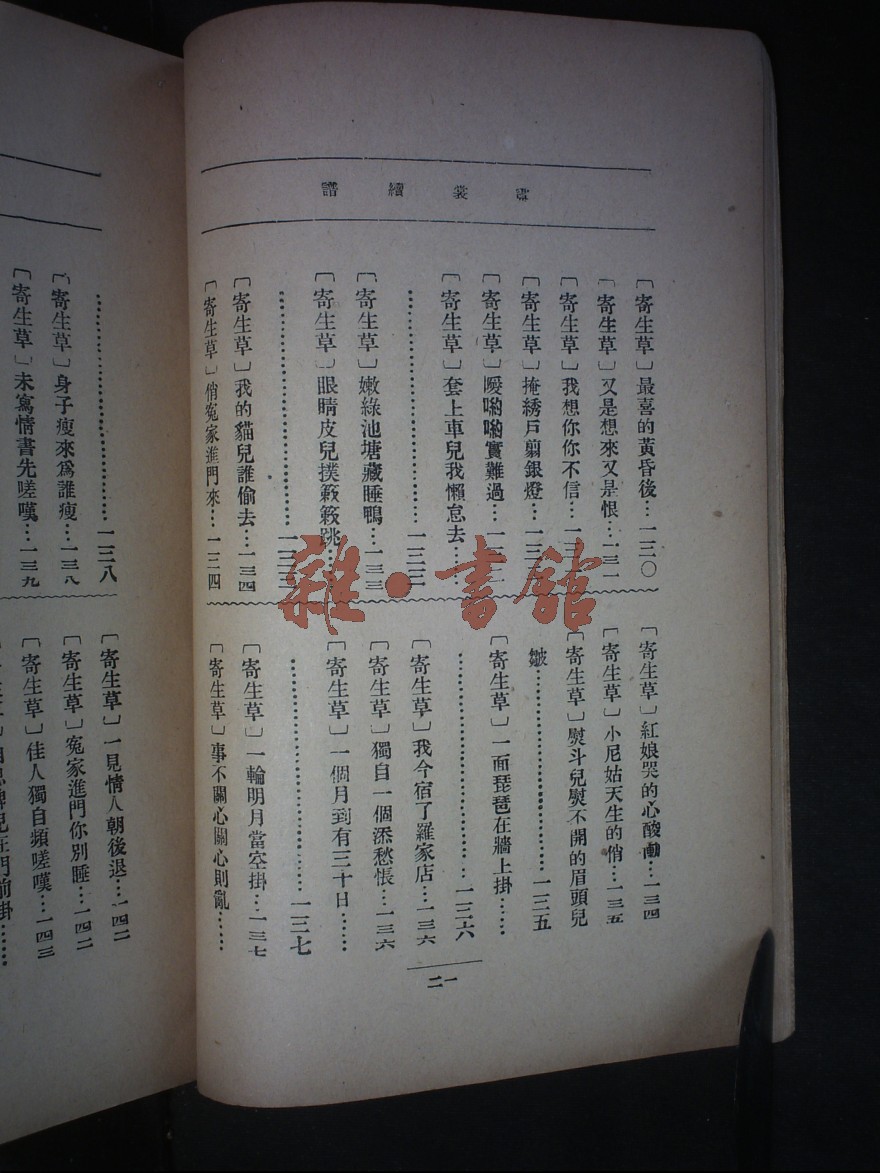 霓裳續譜
〔寄生草〕最喜的黃昏後…一三〇
〔寄生草〕又是想來又是恨…一三一
〔寄生草〕我想你你不信…一三
〔寄生草〕掩綉戶翦銀燈…一三
〔寄生草〕噯喲喲實難過…一三
〔寄生草〕套上車兒我懶怠去……
…………………一三三
〔寄生草〕嫩綠池塘藏睡鴨…一三三
〔寄生草〕眼睛皮兒撲簌簌跳…
…………………一三三
〔寄生草〕我的貓兒誰偷去…一三四
〔寄生草〕俏寃家進門來…一三四
〔寄生草〕紅娘哭的心酸慟…一三四
〔寄生草〕小尼姑天生的俏…一三五
〔寄生草〕熨斗兒熨不開的眉頭兒
皺…………………一三五
〔寄生草〕一面琵琶在牆上掛……
…………………一三六
〔寄生草〕我今宿了羅家店…一三六
〔寄生草〕獨自一個添愁悵…一三六
〔寄生草〕一個月到有三十日……
…………………一三七
〔寄生草〕一輪明月當空掛…一三七
〔寄生草〕事不關心關心則亂……
二一
…………………一三八
〔寄生草〕身子瘦來爲誰瘦…一三八
〔寄生草〕未寫情書先嗟嘆…一三九
〔寄生草〕一見情人朝後退…一四二
〔寄生草〕寃家進門你別睡…一四二
〔寄生草〕佳人獨自頻嗟嘆…一四三
兒在門前掛……
雜·書館